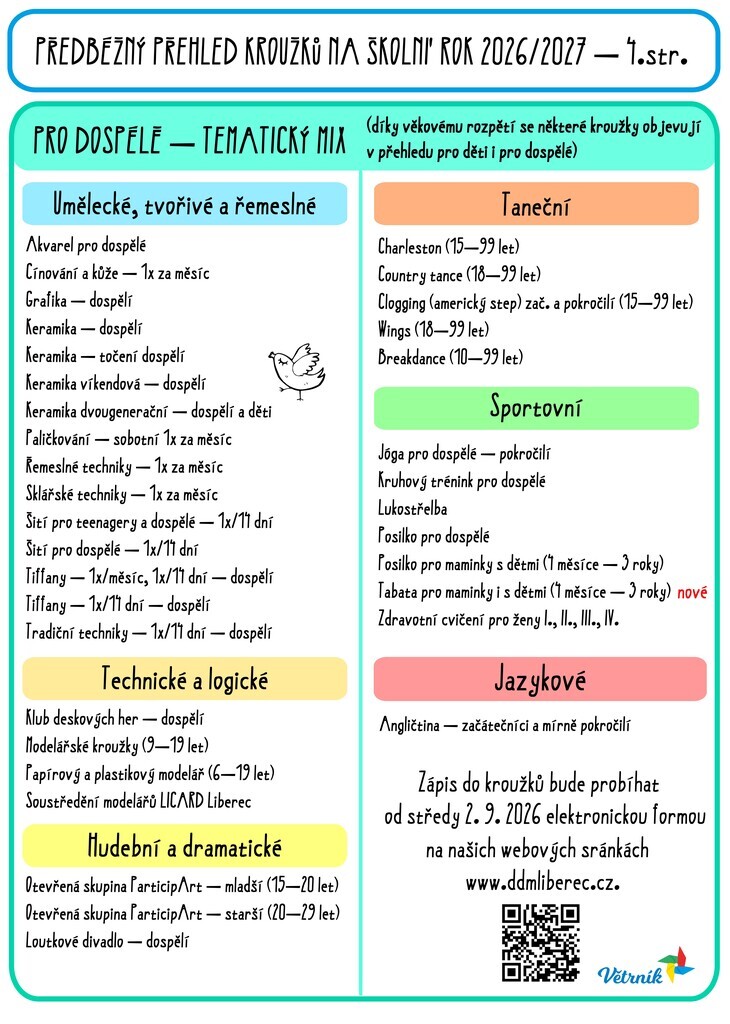 PŘEDBĚŽNÝ PŘEHLED KROUŽKŮ NA ŠKOLNÍ ROK 2026/2027 — 4.str.
PRO DOSPĚLÉ — TEMATICKÝ MIX
(díky věkovému rozpětí se některé kroužky objevují
v přehledu pro děti i pro dospělé)
Umělecké, tvořivé a řemeslné
Akvarel pro dospělé
Cínování a kůže — 1x za měsíc
Grafika — dospělí
Keramika — dospělí
Keramika — točení dospělí
Keramika víkendová — dospělí
Keramika dvougenerační — dospělí a děti
Paličkování — sobotní 1x za měsíc
Řemeslné techniky — 1x za měsíc
Sklářské techniky — 1x za měsíc
Šití pro teenagery a dospělé — 1x/14 dní
Šití pro dospělé — 1x/14 dní
Tiffany — 1x/měsíc, 1x/14 dní — dospělí
Tiffany — 1x/14 dní — dospělí
Tradiční techniky — 1x/14 dní — dospělí
Technické a logické
Klub deskových her — dospělí
Modelářské kroužky (9—19 let)
Papírový a plastikový modelář (6—19 let)
Soustředění modelářů LICARD Liberec
Hudební a dramatické
Otevřená skupina ParticipArt — mladší (15—20 let)
Otevřená skupina ParticipArt — starší (20—29 let)
Loutkové divadlo — dospělí
Taneční
Charleston (15—99 let)
Country tance (18—99 let)
Clogging (americký step) zač. a pokročilí (15—99 let)
Wings (18—99 let)
Breakdance (10—99 let)
Sportovní
Jóga pro dospělé — pokročilí
Kruhový trénink pro dospělé
Lukostřelba
Posilko pro dospělé
Posilko pro maminky s dětmi (4 měsíce — 3 roky)
Tabata pro maminky i s dětmi (4 měsíce — 3 roky) nové
Zdravotní cvičení pro ženy I., II., III., IV.
Jazykové
Angličtina — začátečníci a mírně pokročilí
Zápis do kroužků bude probíhat
od středy 2. 9. 2026 elektronickou formou
na našich webových sránkách
www.ddmliberec.cz.
Větrník